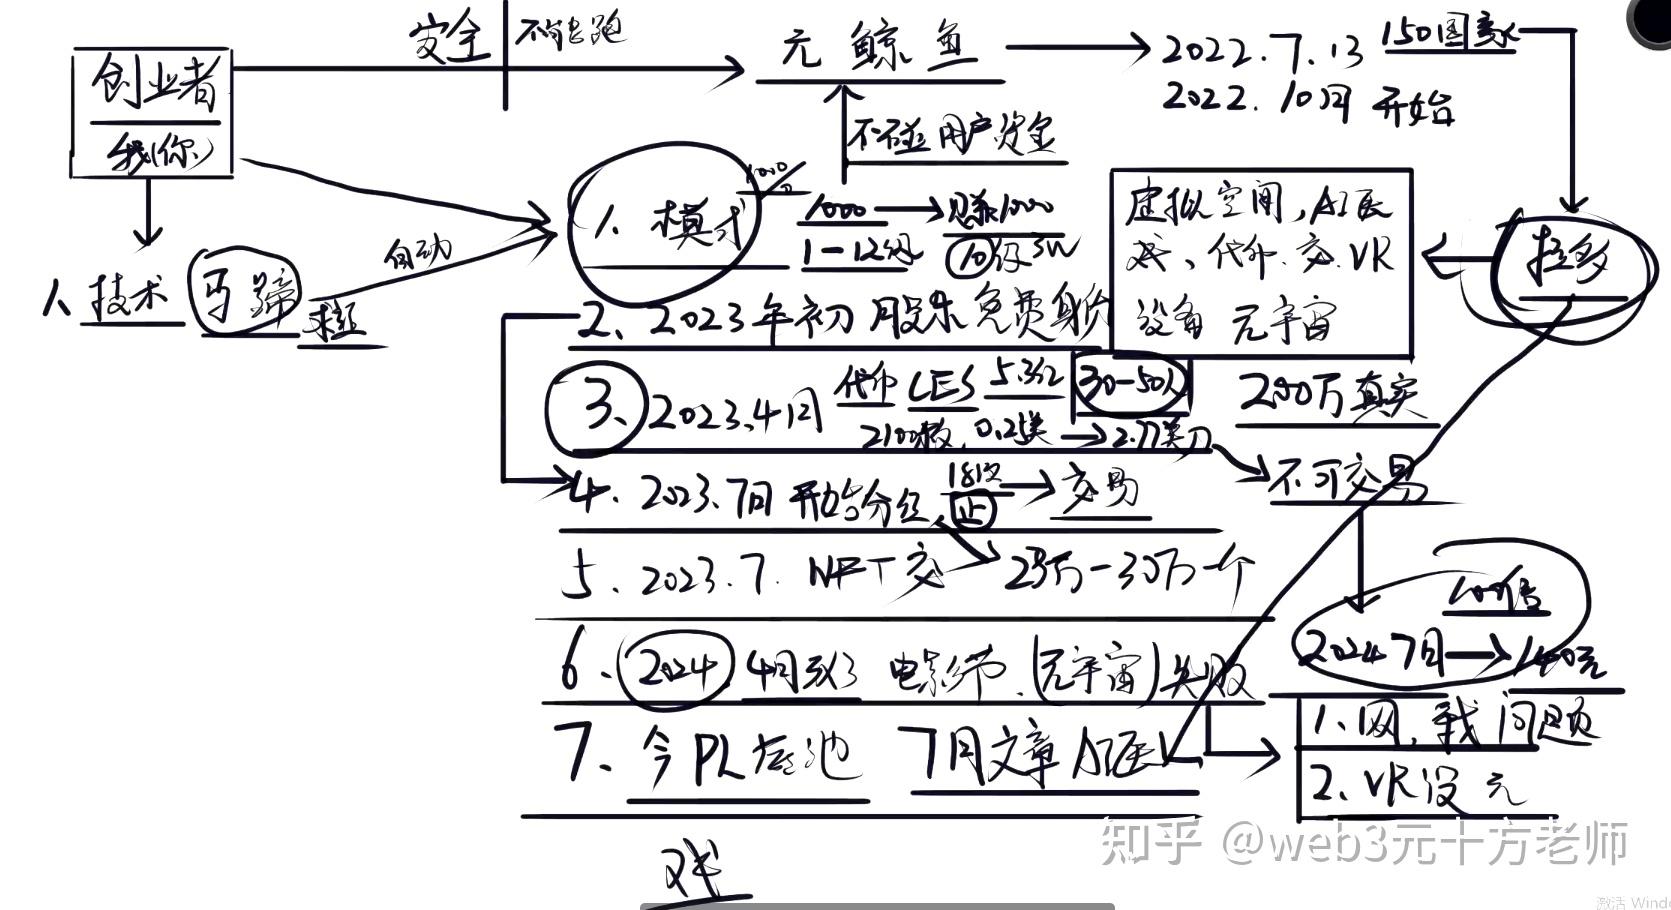 安全 不会跑
元鲸鱼
2022.7.13 150国家
2022.10月 开始
创业者
我(你)
不碰用户资金
1、模式
1000 → 1000
1—12级 10倍 3W
自动
1、技术 马蹄
虚拟空间,AI医
代币、交、VR
设备 元宇宙
拉多
2、2023年初 股东免费
3、2023.4月 代币 LES 30-50人
2100枚,0.2美 → 2.77美刀
200万真实
不可交易
4、2023.7月 开始分红 → 交易
5、2023.7. NFT交 23万-30万一个
100倍
6、2024 4月 电影节、(元宇宙)失败
2024 7月 → 140元
7、今 PL底池 7月文章 AI医
1、网, 我 问题
2、VR设 元
知乎 @web3元十方老师
激活 Wind